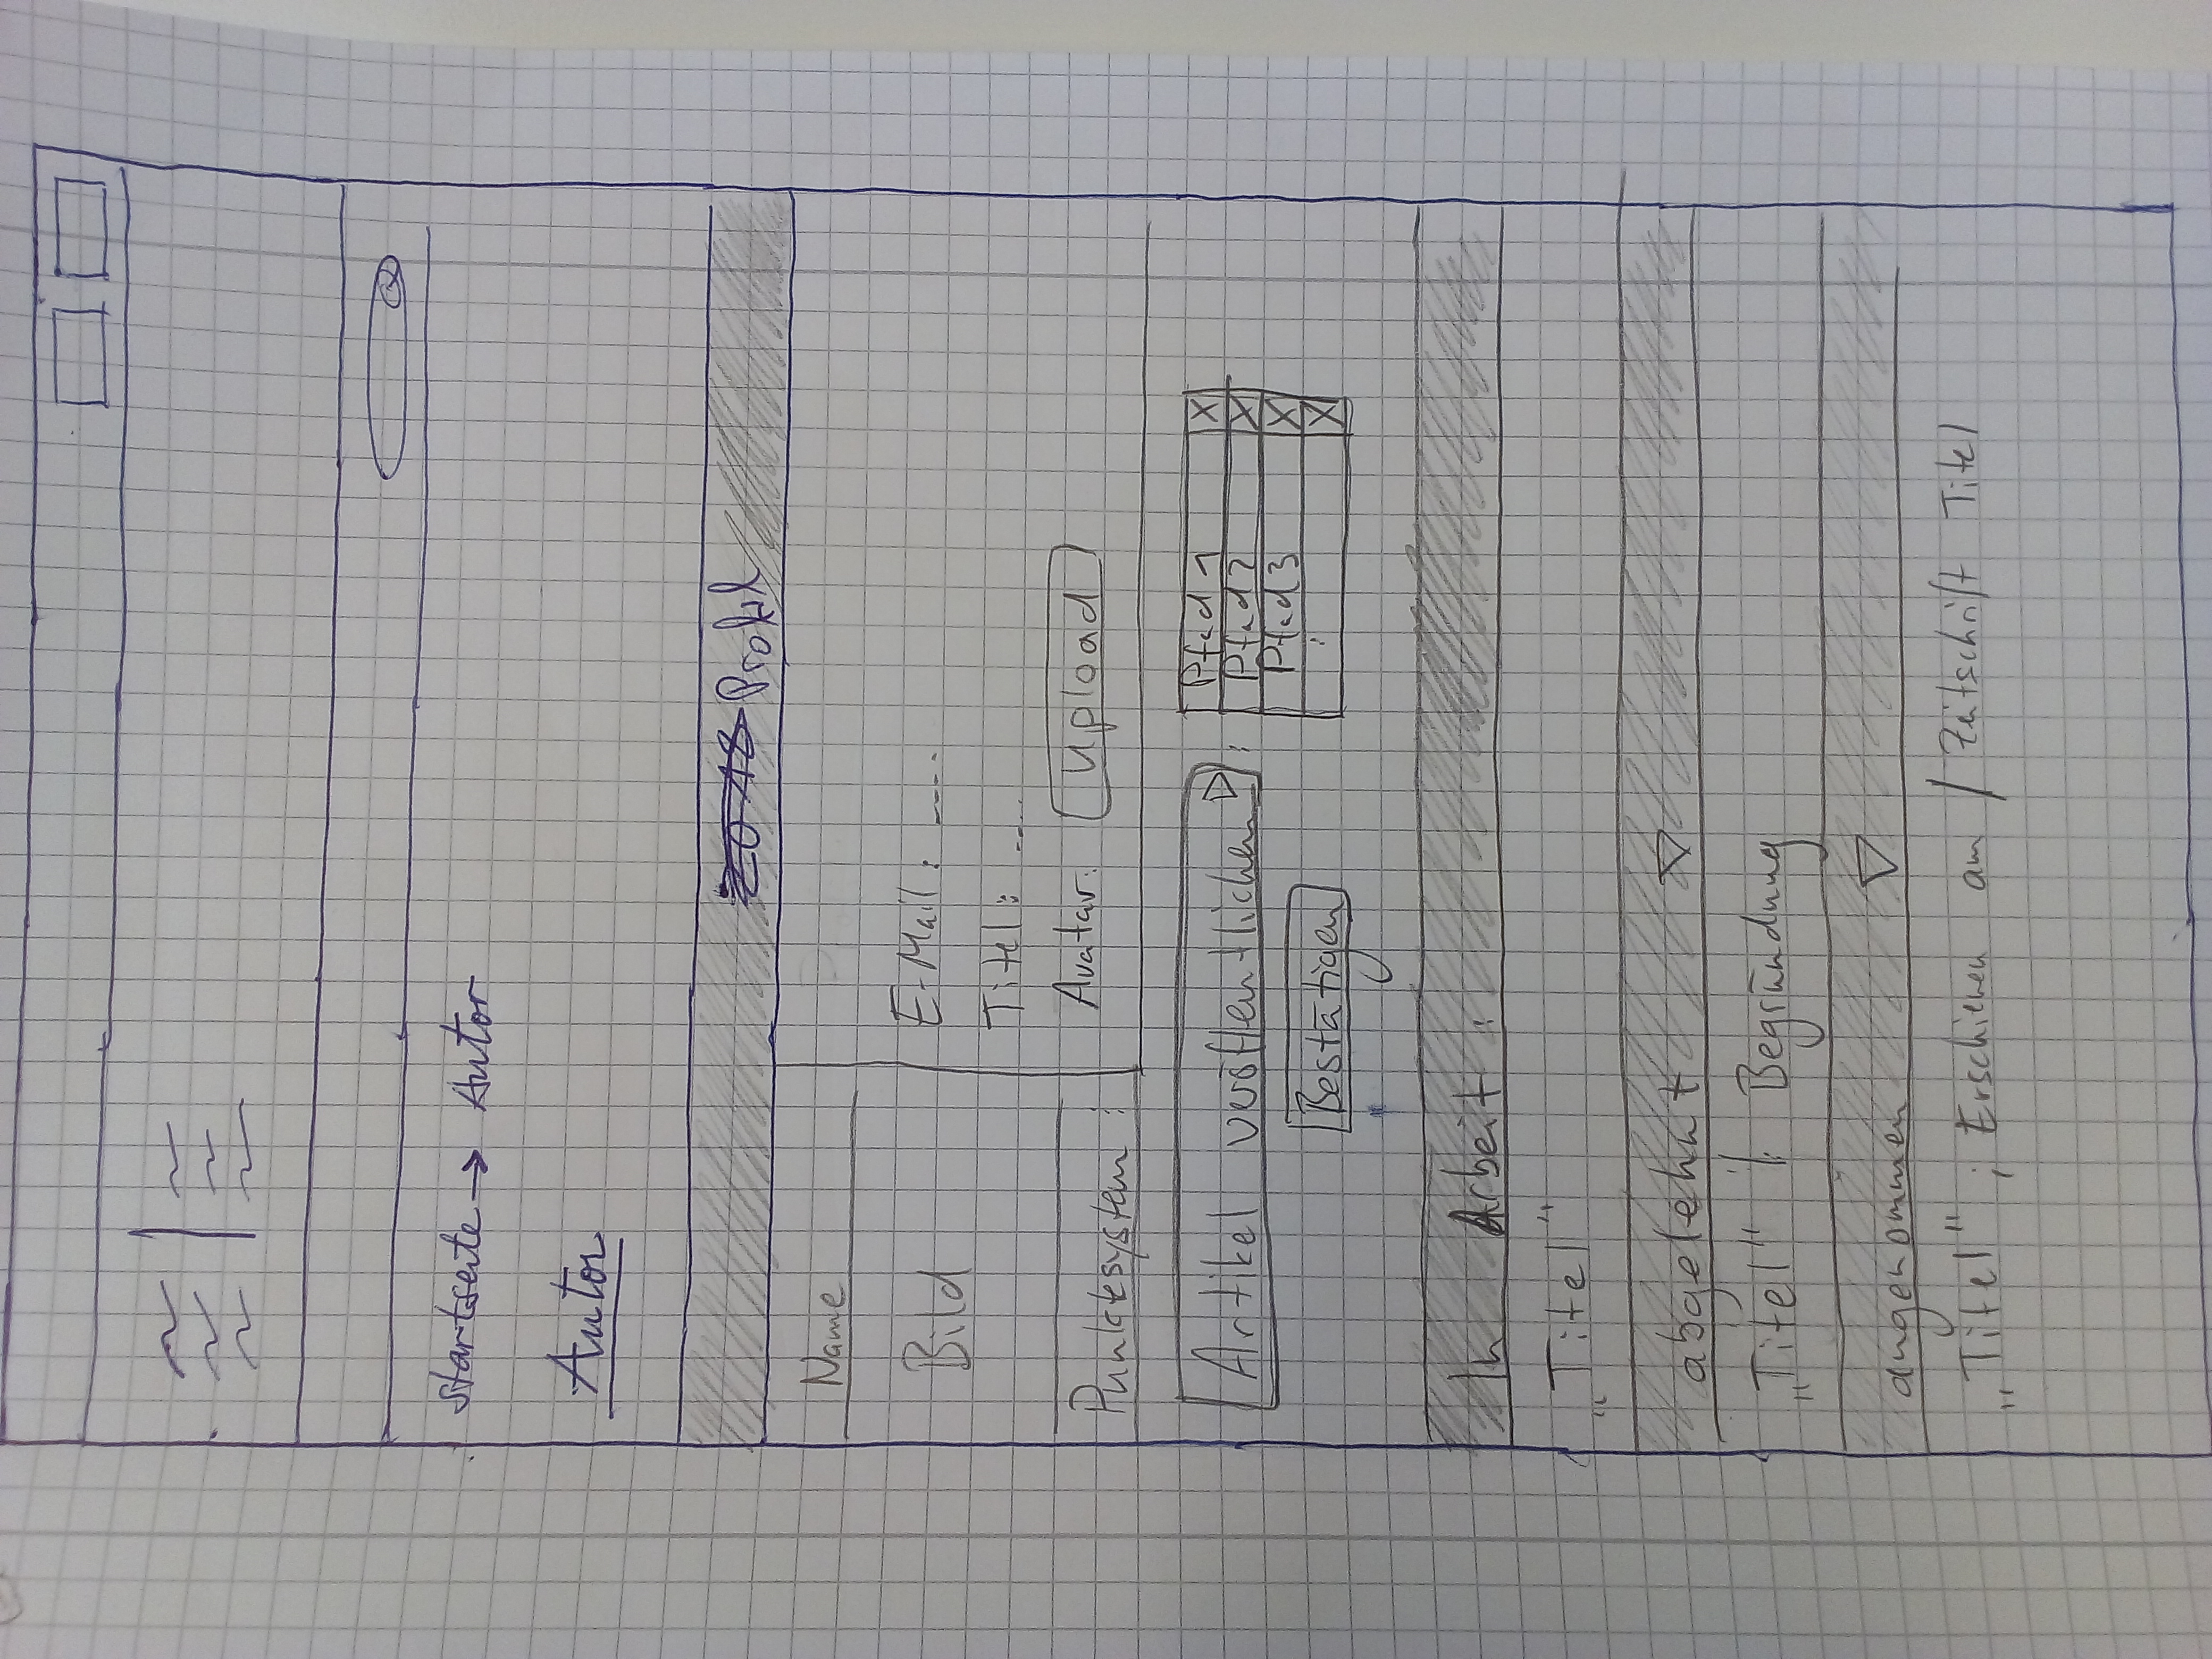 Startseite → Autor
Autor
2018 Profil
Name
Bild
E-Mail: ----
Titel: ----
Avatar: Upload
Punktesystem :
Artikel veröffentlichen ▷ :
Pfad 1 X
Pfad 2 X
Pfad 3 X
: X
Bestätigen
In Arbeit :
„Titel“
abgelehnt ▽
„Titel“ : Begründung
angenommen ▽
„Titel“ ; Erschienen am / Zeitschrift Titel